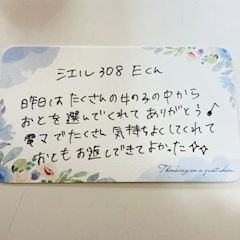 シエル 308 Eくん
昨日は たくさんの女の子の中から
おとを 選んでくれて ありがとう♪
電マで たくさん 気持ちよくしてくれて
おともお返しできてよかった☆☆
Thinking on a quiet shore.